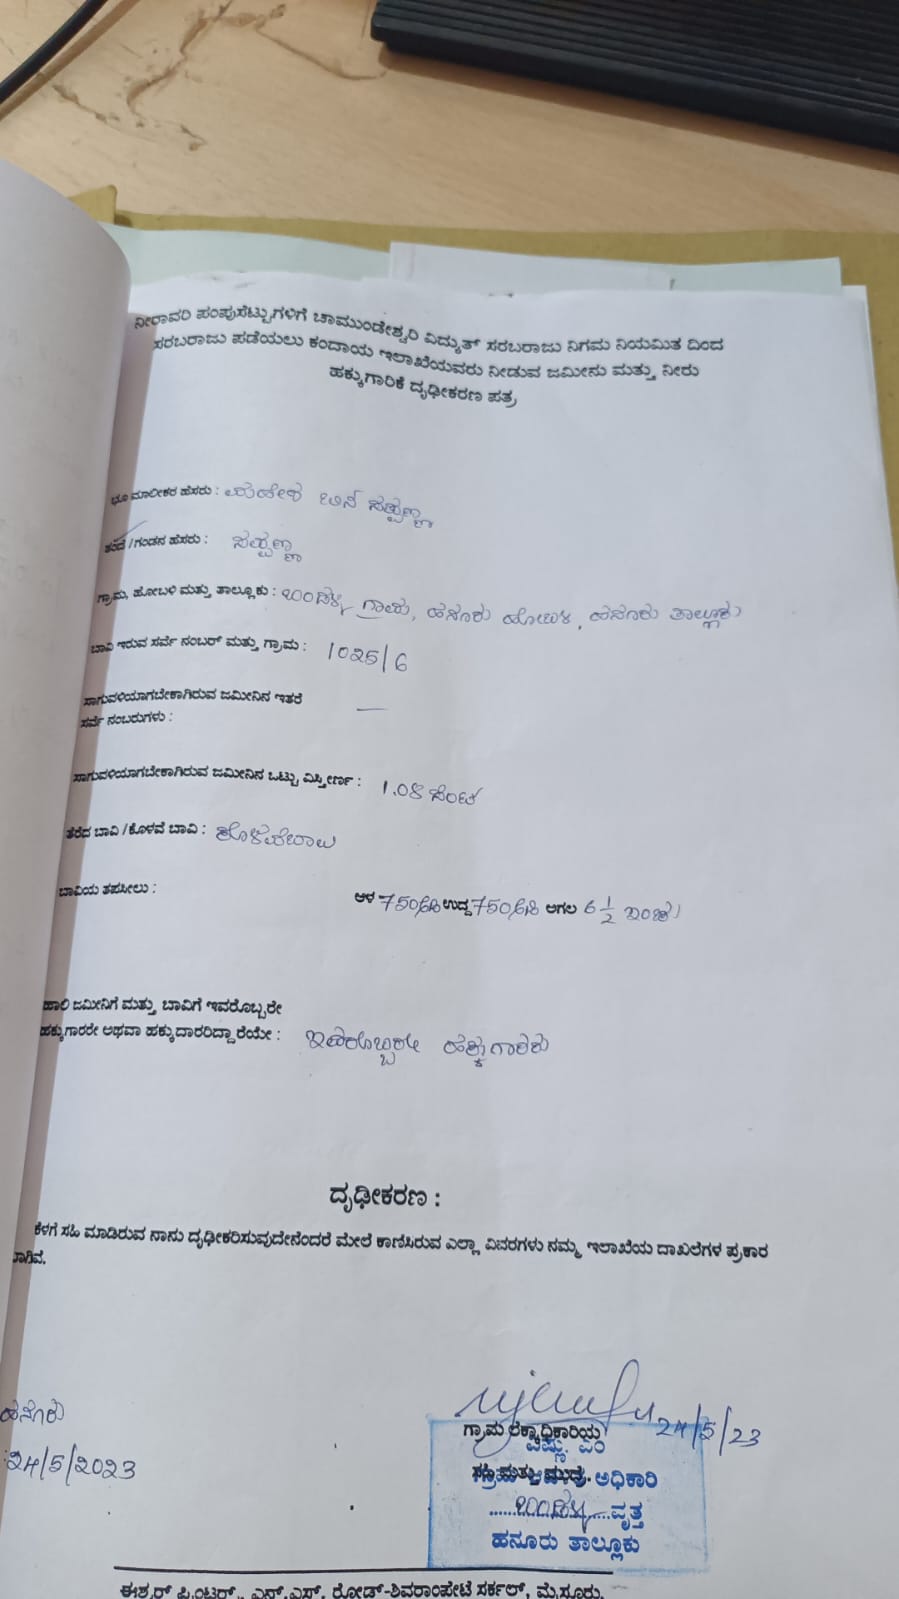 ನೀರಾವರಿ ಪಂಪುಸೆಟ್ಟುಗಳಿಗೆ ಚಾಮುಂಡೇಶ್ವರಿ ವಿದ್ಯುತ್ ಸರಬರಾಜು ನಿಗಮ ನಿಯಮಿತ ದಿಂದ
ಸರಬರಾಜು ಪಡೆಯಲು ಕಂದಾಯ ಇಲಾಖೆಯವರು ನೀಡುವ ಜಮೀನು ಮತ್ತು ನೀರು
ಹಕ್ಕುಗಾರಿಕೆ ದೃಢೀಕರಣ ಪತ್ರ
ಭೂ ಮಾಲೀಕರ ಹೆಸರು : ಮಹೇಶ ಬಿನ್ ಸಪ್ಪಣ್ಣ
ತಂದೆ /ಗಂಡನ ಹೆಸರು : ಸಪ್ಪಣ್ಣ
ಗ್ರಾಮ, ಹೋಬಳಿ ಮತ್ತು ತಾಲ್ಲೂಕು : ಬಂಡಳ್ಳಿ ಗ್ರಾಮ, ಹನೂರು ಹೋಬಳಿ, ಹನೂರು ತಾಲ್ಲೂಕು
ಬಾವಿ ಇರುವ ಸರ್ವೆ ನಂಬರ್ ಮತ್ತು ಗ್ರಾಮ : 1025/6
ಸಾಗುವಳಿಯಾಗಬೇಕಾಗಿರುವ ಜಮೀನಿನ ಇತರೆ
ಸರ್ವೆ ನಂಬರುಗಳು : —
ಸಾಗುವಳಿಯಾಗಬೇಕಾಗಿರುವ ಜಮೀನಿನ ಒಟ್ಟು ವಿಸ್ತೀರ್ಣ : 1.04 ಸೆಂಟ್
ತೆರೆದ ಬಾವಿ /ಕೊಳವೆ ಬಾವಿ : ಕೊಳವೆಬಾವಿ
ಬಾವಿಯ ತಪಸೀಲು : ಆಳ 750ಅಡಿ ಉದ್ದ 750ಅಡಿ ಅಗಲ 6 1/2 ಇಂಚು
ಹಾಲಿ ಜಮೀನಿಗೆ ಮತ್ತು ಬಾವಿಗೆ ಇವರೊಬ್ಬರೇ
ಹಕ್ಕುಗಾರರೇ ಅಥವಾ ಹಕ್ಕುದಾರರಿದ್ದಾರೆಯೇ : ಇವರೊಬ್ಬರೇ ಹಕ್ಕುಗಾರರು
ದೃಢೀಕರಣ :
ಕೆಳಗೆ ಸಹಿ ಮಾಡಿರುವ ನಾನು ದೃಢೀಕರಿಸುವುದೇನೆಂದರೆ ಮೇಲೆ ಕಾಣಿಸಿರುವ ಎಲ್ಲಾ ವಿವರಗಳು ನಮ್ಮ ಇಲಾಖೆಯ ದಾಖಲೆಗಳ ಪ್ರಕಾರ
ಹನೂರು
24/5/2023
24/5/23
ಗ್ರಾಮ ಲೆಕ್ಕಾಧಿಕಾರಿಯ
ವಿಷ್ಣು. ಎಂ
ಸಹಿ ಮತ್ತು ಮುದ್ರೆ.
ಅಧಿಕಾರಿ
ಬಂಡಳ್ಳಿ ವೃತ್ತ
ಹನೂರು ತಾಲ್ಲೂಕು
ಈಶ್ವರ್ ಪ್ರಿಂಟರ್ಸ್, ಎನ್.ಎಸ್. ರೋಡ್-ಶಿವರಾಂಪೇಟೆ ಸರ್ಕಲ್, ಮೈಸೂರು.